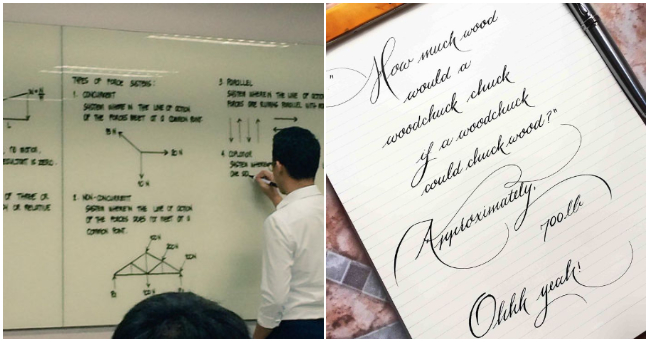 TYPES OF FORCE SYSTEMS:
1. CONCURRENT
SYSTEM WHERE IN THE LINE OF ACTION
OF THE FORCES MEET AT A COMMON POINT.
20 N
2. NON-CONCURRENT
SYSTEM WHEREIN THE LINE OF ACTION
OF THE FORCES DOES NOT MEET AT A
COMMON POINT.
3. PARALLEL
SYSTEM WHERE IN THE LINE OF
FORCES ARE RUNNING PARALLEL WITH
4. COPLANAR
SYSTEM WHEREIN
ONE
OR RELATIVE
"How much wood
would a
woodchuck chuck
if a woodchuck
could chuck wood?"
Approximately,
700lb
Ohhh yeah!